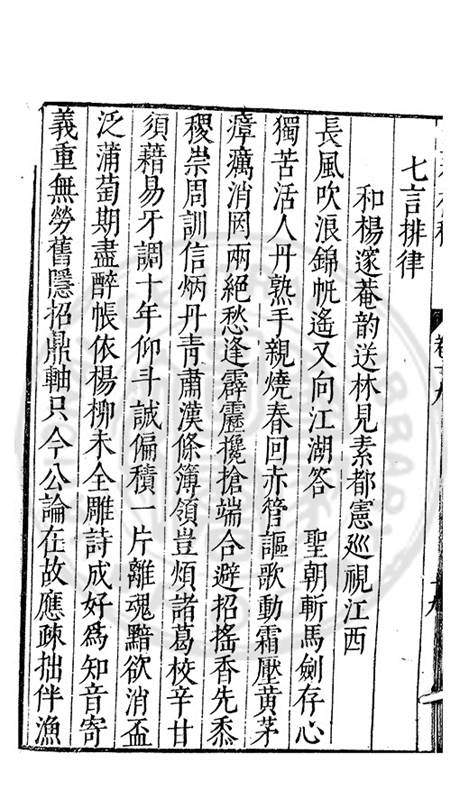 七言排律
和楊邃菴韵送林見素都憲廵視江西
長風吹浪錦帆遙又向江湖答　聖朝斬馬劍存心
獨苦活人丹熟手親燒春回赤管謳歌動霜壓黃茅
瘴癘消罔兩絕愁逢霹靂攙搶端合避招搖香先黍
稷崇周訓信炳丹青肅漢條簿領豈煩諸葛校辛甘
須藉易牙調十年仰斗誠偏積一片離魂黯欲消盃
泛蒲萄期盡醉帳依楊柳未全雕詩成好爲知音寄
義重無勞舊隱招鼎軸只今公論在故應疎拙伴漁